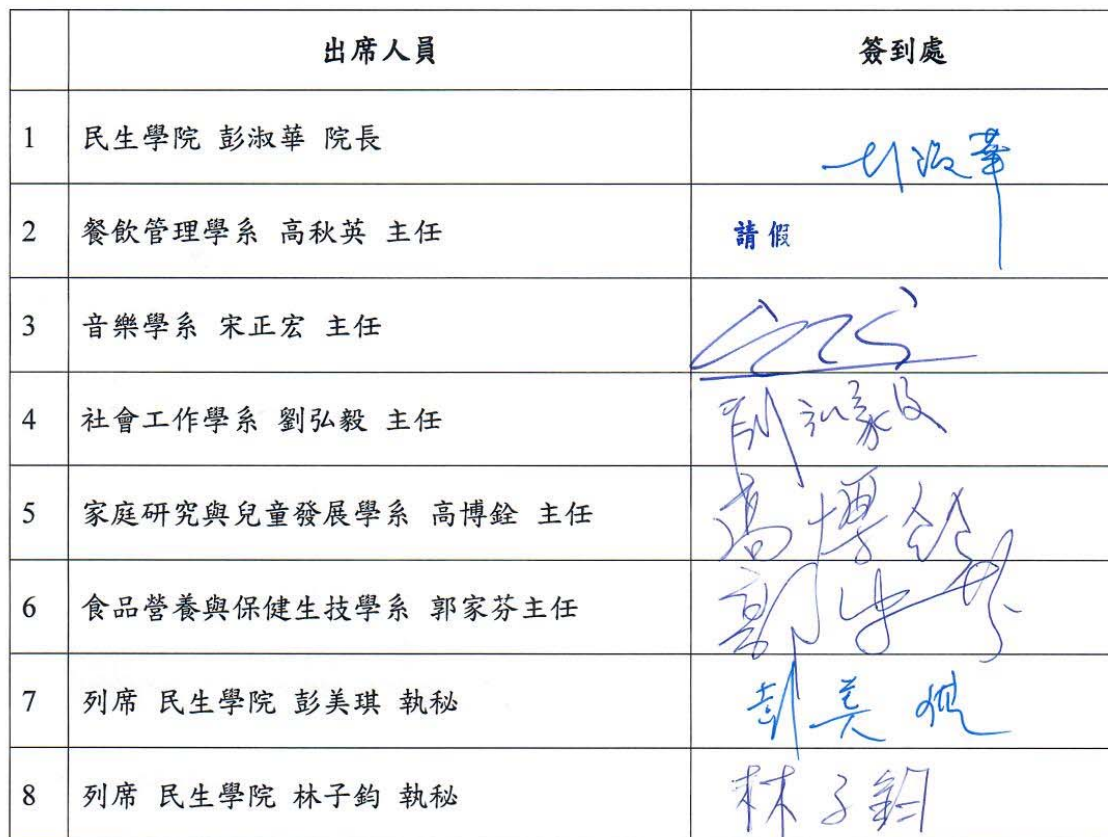 出席人員 簽到處
1 民生學院 彭淑華 院長 彭淑華
2 餐飲管理學系 高秋英 主任 請假
3 音樂學系 宋正宏 主任
4 社會工作學系 劉弘毅 主任
5 家庭研究與兒童發展學系 高博銓 主任 高博銓
6 食品營養與保健生技學系 郭家芬主任 郭家芬
7 列席 民生學院 彭美琪 執秘 彭美琪
8 列席 民生學院 林子鈞 執秘 林子鈞